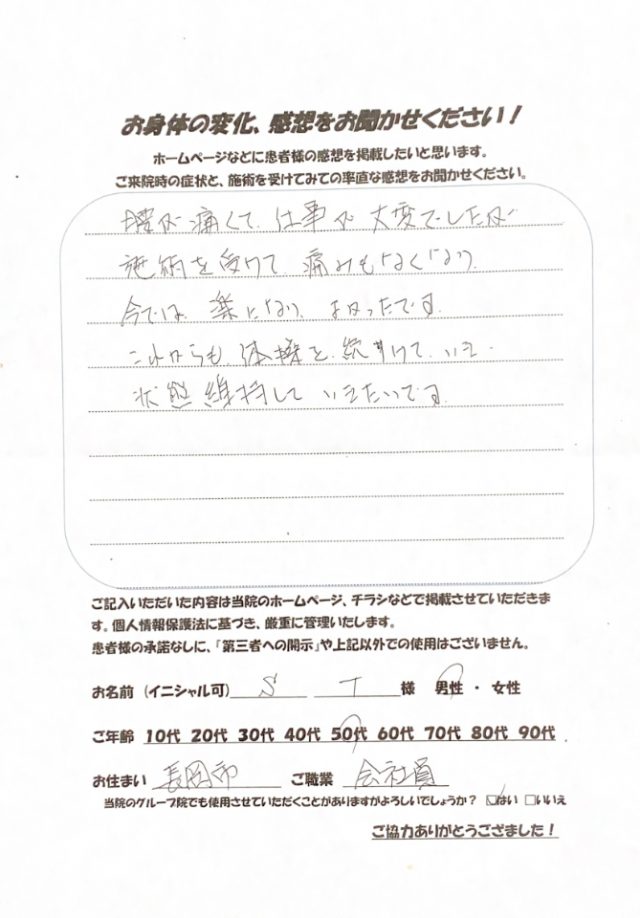 お身体の変化、感想をお聞かせください！
ホームページなどに患者様の感想を掲載したいと思います。
ご来院時の症状と、施術を受けてみての率直な感想をお聞かせください。
腰が痛くて、仕事が大変でしたが
施術を受けて、痛みもなくなり、
今では、楽になり、よかったです。
これからも、体操を、続けて、いき
状態維持して いきたいです。
ご記入いただいた内容は当院のホームページ、チラシなどで掲載させていただきま
す。個人情報保護法に基づき、厳重に管理いたします。
患者様の承諾なしに、「第三者への開示」や上記以外での使用はございません。
お名前（イニシャル可） S T 様 男性 ・ 女性
ご年齢 10代 20代 30代 40代 50代 60代 70代 80代 90代
お住まい 長岡市 ご職業 会社員
当院のグループ院でも使用させていただくことがありますがよろしいでしょうか？ ☑はい □いいえ
ご協力ありがとうござました！